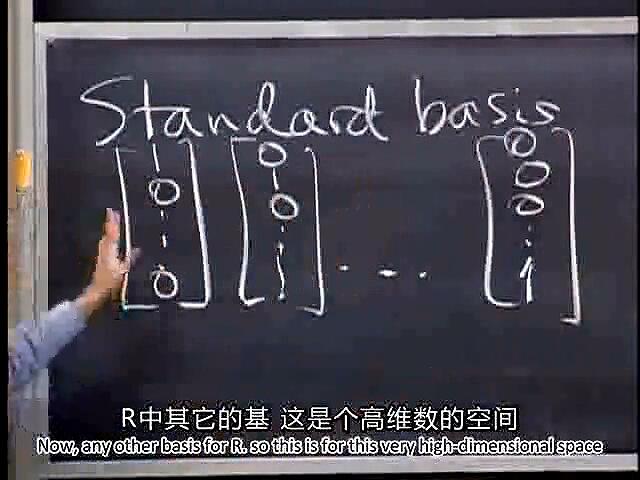 Standard basis
[1 0 ⋮ 0] [0 1 0 ⋮ ] ... [0 0 0 ⋮ 1]
R中其它的基 这是个高维数的空间
Now, any other basis for R. so this is for this very high-dimensional space